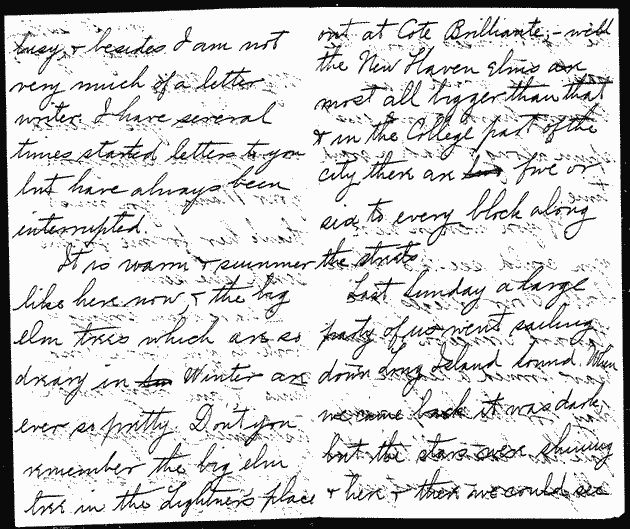 busy, & besides I am not
very much of a letter
writer. I have several
times started letters to you
but have always been
interrupted.
It is warm & summer
like here now, & the big
elm trees which are so
dreary in Winter are
ever so pretty. Don't you
remember the big elm
tree in the Lightner's place
out at Cote Brilliante, - well
the New Haven elms are
most all bigger than that
& in the College part of the
city there are five or
six to every block along
the streets.
Last Sunday a large
party of us went sailing
down Long Island Sound. When
we came back it was dark,
but the stars were shining
& here & there we could see